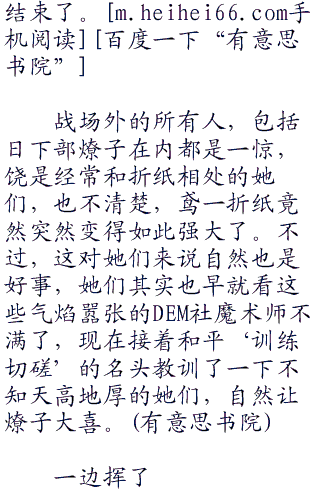 结束了。[m.heihei66.com手
机阅读][百度一下“有意思
书院”]
战场外的所有人，包括
日下部燎子在内都是一惊，
饶是经常和折纸相处的她
们，也不清楚，鸢一折纸竟
然突然变得如此强大了。不
过，这对她们来说自然也是
好事，她们其实也早就看这
些气焰嚣张的DEM社魔术师不
满了，现在接着和平‘训练
切磋’的名头教训了一下不
知天高地厚的她们，自然让
燎子大喜。(有意思书院)
一边挥了